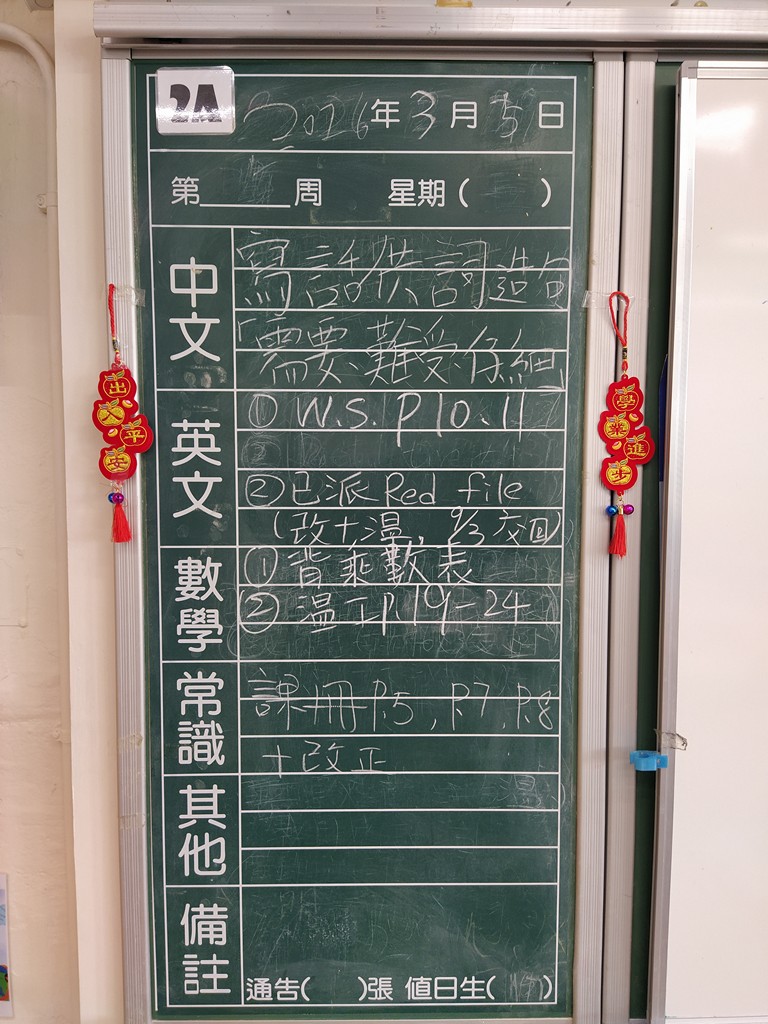 2A
2026年3月5日
第 周 星期( )
中文
寫話供詞造句
「需要、難受、仔細」
英文
① W.S. P10.11
② 已派 Red file
(改+溫, 9/3 交回)
數學
① 背乘數表
② 溫工P.19-24
常識
課冊 P.5, P.7, P.8
+改正
其他
備註
通告( )張 值日生( )
出
入
平
安
學
業
進
步